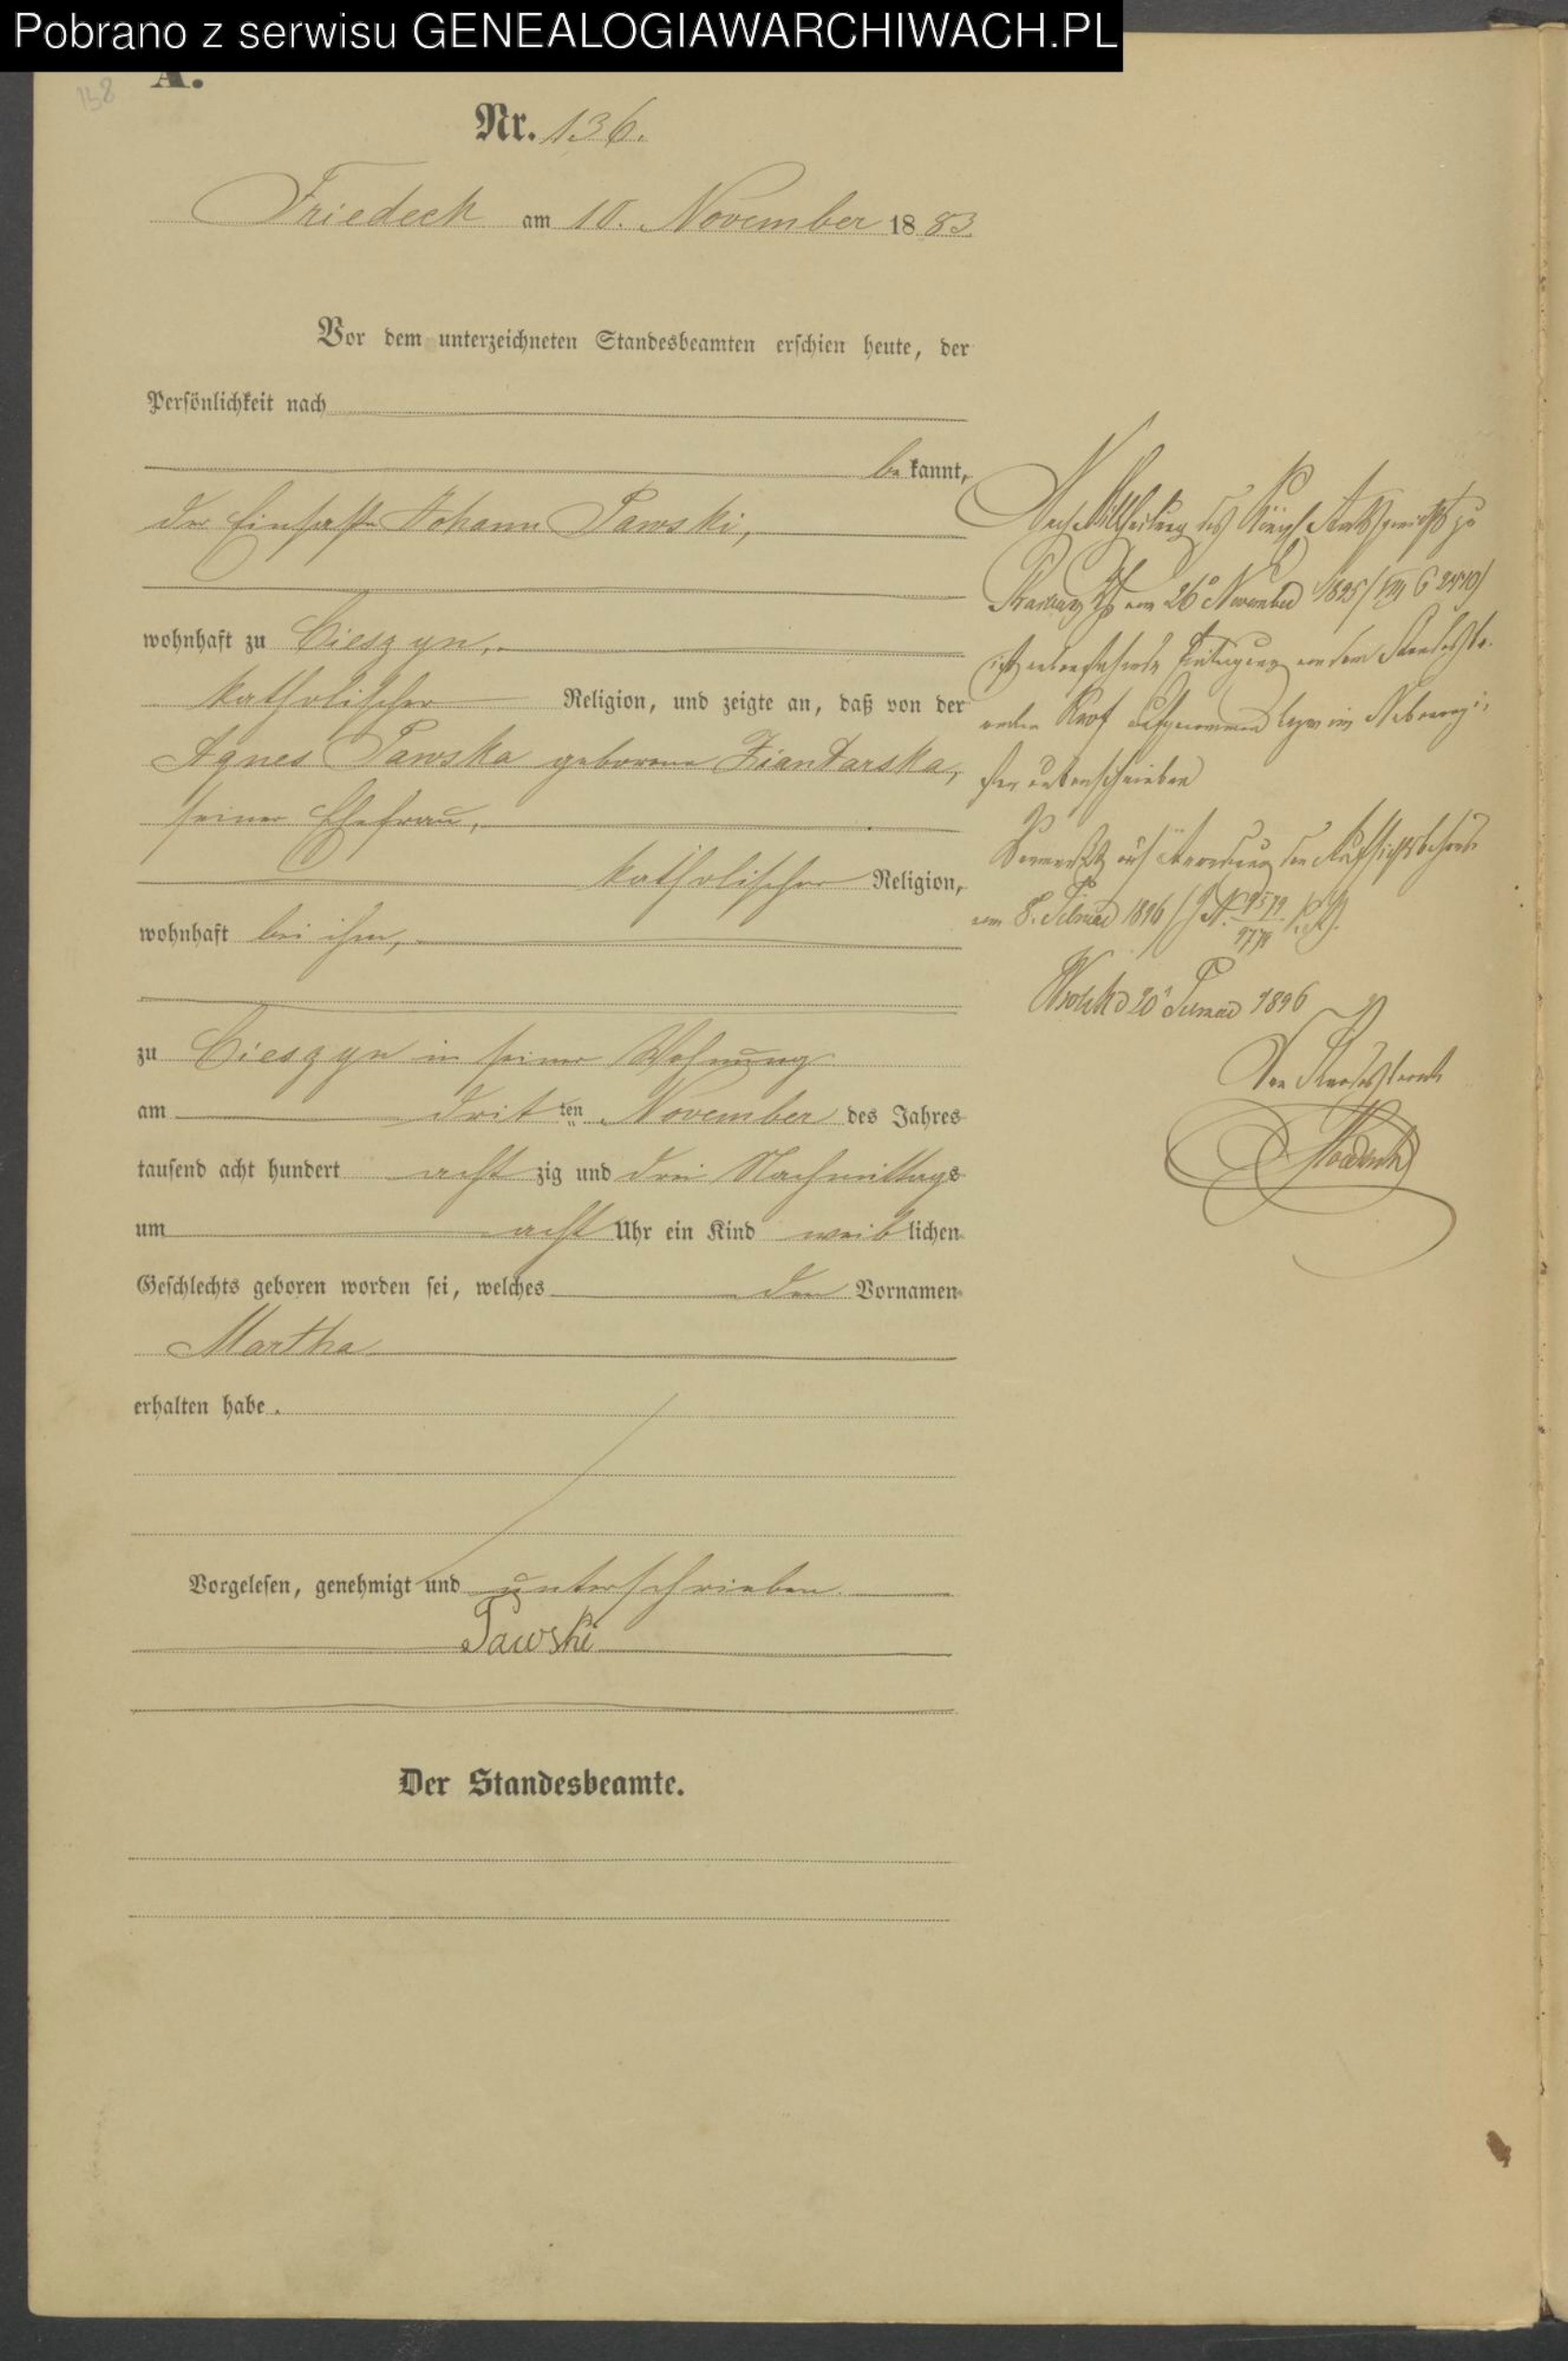 Pobrano z serwisu GENEALOGIAWARCHIWACH.PL
A.
158
Nr. 136.
Friedeck am 10. November 1883.
Vor dem unterzeichneten Standesbeamten erschien heute, der
Persönlichkeit nach
bekannt,
der Einsasse Johann Pawski,
wohnhaft zu Cieszyn,
katholischer Religion, und zeigte an, daß von der
Agnes Pawska geborene Ziantarska,
seiner Ehefrau,
katholischer Religion,
wohnhaft bei ihm,
zu Cieszyn in seiner Wohnung
am dritten November des Jahres
tausend acht hundert achtzig und drei Nachmittags
um acht Uhr ein Kind weiblichen
Geschlechts geboren worden sei, welches den Vornamen
Martha
erhalten habe.
Vorgelesen, genehmigt und unterschrieben.
Pawski
Der Standesbeamte.
Nach Mittheilung des Königl. Amtsgerichts zu
vom 26. November 1895
ist Eintragung von dem Standesbe-
amten
unterschrieben
Vermerkt auf Anordnung der Aufsichtsbehörde
vom 8. Januar 1896
20. Januar 1896
Der Standesbeamte